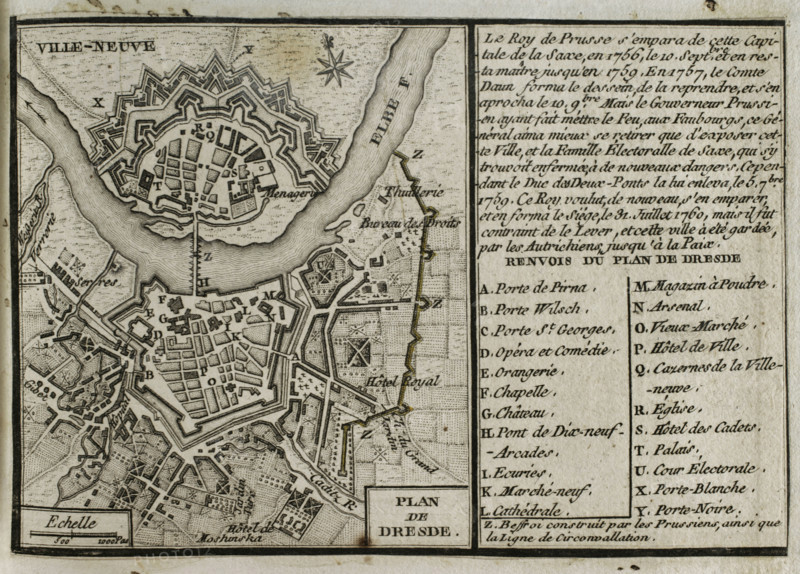 VILLE-NEUVE
Y
X
ELBE F.
Z
R Q
S
T
Menagerie
Thuillerie
Bureau des Droits
Z
Z
H
F
E
G
D
B
L
M
I
K
P
O
Serres
Verrerie
Hôtel Royal
Z
du Grand
Caditz R.
Hôtel de
Moshinska
Echelle
500 1000 Pas
PLAN
DE
DRESDE.
Le Roy de Prusse s'empara de cette Capi-
tale de la Saxe, en 1756, le 10. Septbre. et en res-
ta maître jusqu'en 1759. En 1757, le Comte
Daun forma le dessein, de la reprendre, et s'en
aprocha le 10. 9bre Mais le Gouverneur Prussi-
en ayant fait mettre le Feu, aux Fauxbourgs, ce Gé-
néral aima mieux se retirer que d'exposer cet-
te Ville, et la Famille Electoralle de Saxe, qui s'y
trouvoit enfermée, à de nouveaux dangers. Cepen-
dant le Duc des Deux-Ponts la lui enleva, le 5. 7bre
1759. Ce Roy voulut, de nouveau, s'en emparer,
et en forma le Siége, le 31. Juillet 1760, mais il fut
contraint de le Lever, et cette ville à été gardée,
par les Autrichiens, jusqu'à la Paix.
RENVOIS DU PLAN DE DRESDE
A. Porte de Pirna.
B. Porte Wilsch.
C. Porte St. Georges.
D. Opéra et Comédie.
E. Orangerie.
F. Chapelle.
G. Château.
H. Pont de Dix-neuf-
-Arcades.
I. Ecuries.
K. Marché-neuf.
L. Cathédrale.
M. Magazin à Poudre.
N. Arsenal.
O. Vieux-Marché.
P. Hôtel de Ville.
Q. Cazernes de la Ville-
-neuve.
R. Église.
S. Hôtel des Cadets.
T. Palais.
U. Cour Électorale.
X. Porte-Blanche.
Y. Porte-Noire.
Z. Beffroi construit par les Prussiens, ainsi que
la Ligne de Circonvallation.